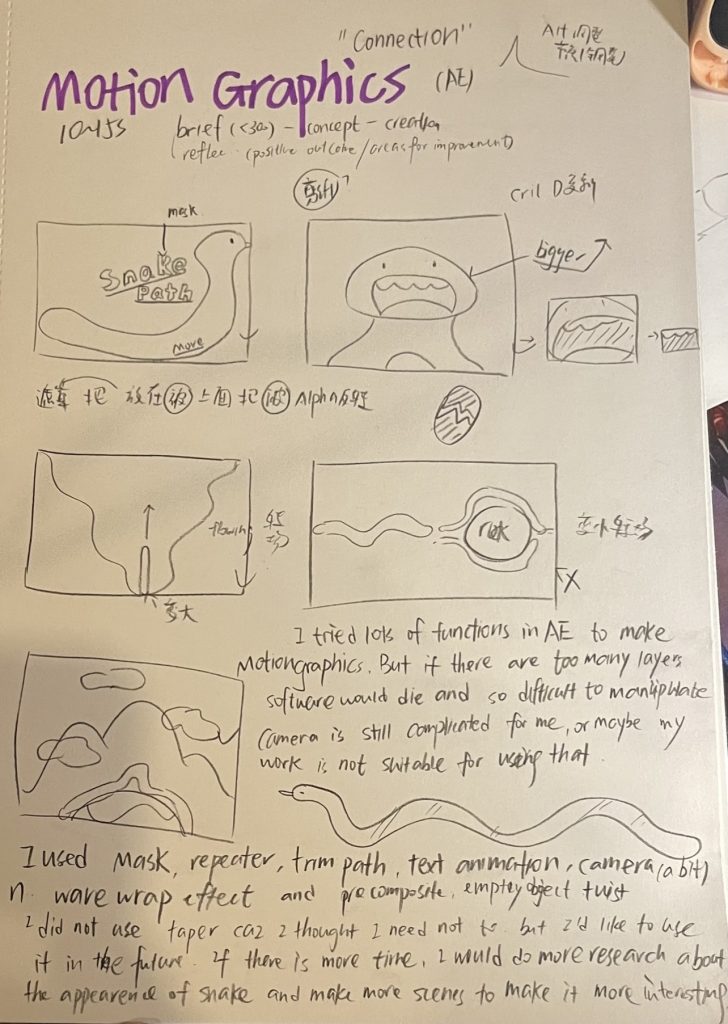 "Connection"
Motion Graphics (AE)
10-15s brief (<30) - concept - creation
reflec (positive outcome/areas for improvement)
mask
Snake
Path
move
bigger
遮罩 把 放在 被 上面 把 被 Alpha反转
flowing
转场
变大
rock
变小转场
X
I tried lots of functions in AE to make
Motiongraphics. But if there are too many layers
software would die and so difficult to maniplulate
Camera is still complicated for me, or maybe my
work is not suitable for using that.
I used Mask, repeater, trim path, text animation, camera (a bit)
n. wave wrap effect and precomposite, emptey object twist
I did not use taper caz I thought I need not to. but I'd like to use
it in the future. If there is more time, I would do more research about
the appearence of snake and make more scenes to make it more interesting